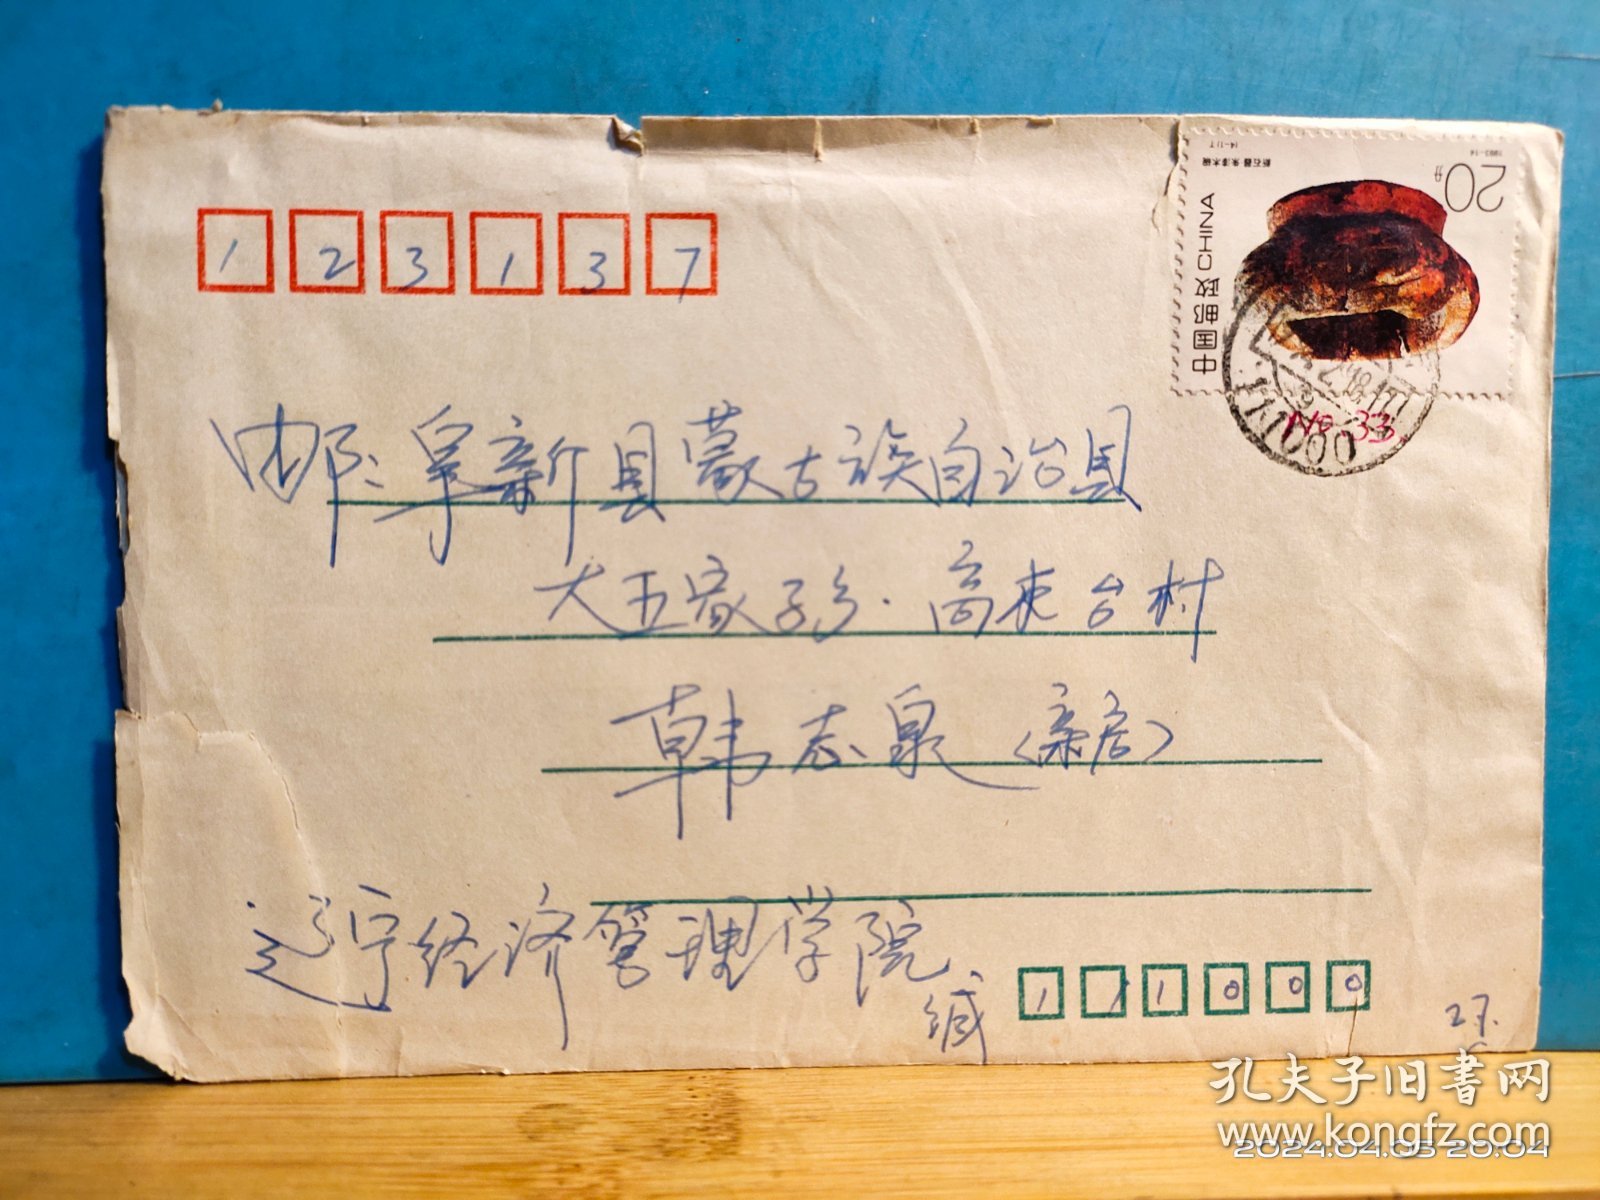 123137
20分
1993-14
中国邮政 CHINA
新石器 朱漆木碗
(14-1)T
No.33
邮:阜新县蒙古族自治县
大五家子乡·高束台村
韩志泉(亲启)
辽宁经济管理学院
缄
111000
27.
孔夫子旧书网
www.kongfz.com
2024.04.05 20:04